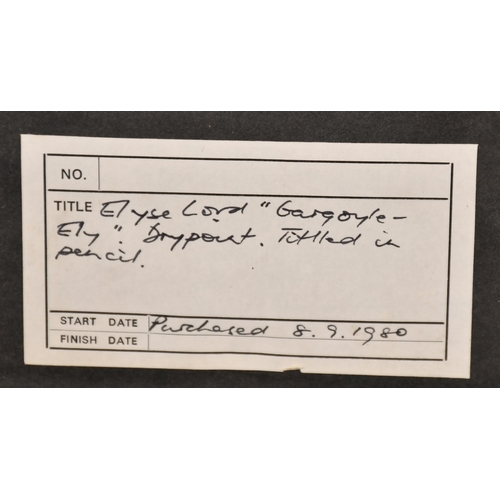 NO.
TITLE Elyse Lord "Gargoyle-
Ely". Drypoint. Titled in
pencil.
START DATE Purchased 8.9.1980
FINISH DATE